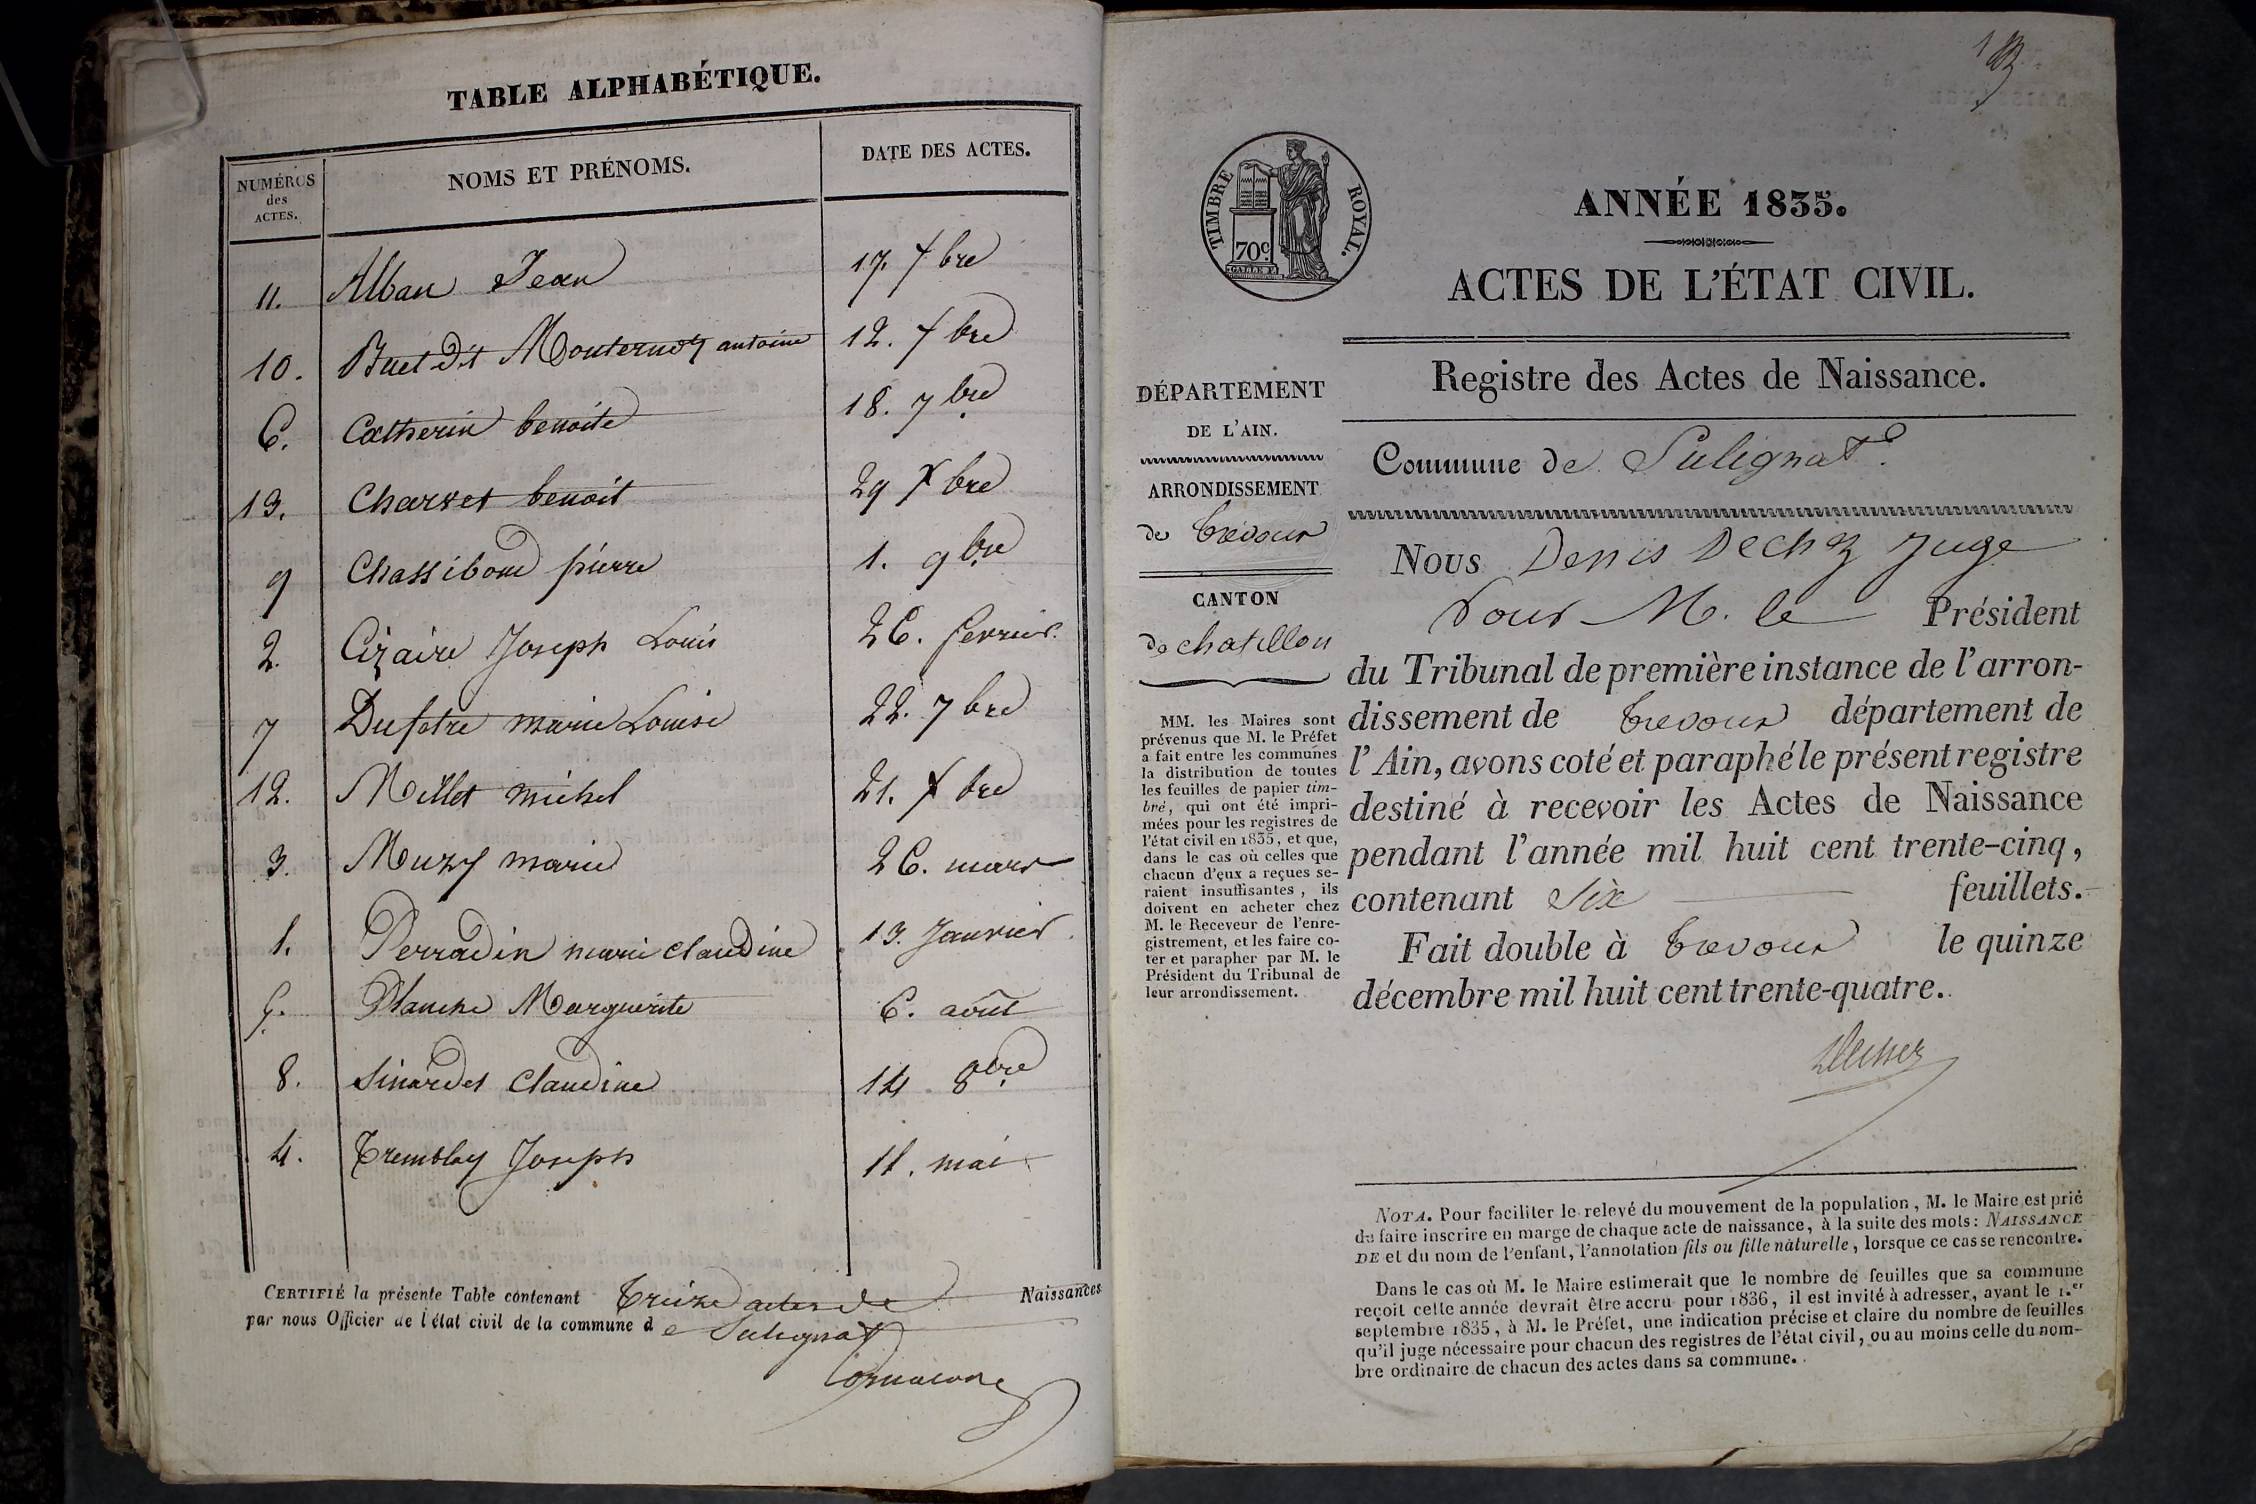 TABLE ALPHABÉTIQUE.
NUMÉROS des ACTES. NOMS ET PRÉNOMS. DATE DES ACTES.
11. Alban Jean 17. Xbre
10. Buet dit Monternoz antoine 12. Xbre
6. Catherin benoite 18. 7bre
13. Charvet benoit 29 Xbre
9 Chassibout pierre 1. 9bre
2. Cizaire Joseph Louis 26. fevrier.
7 Dufetre marie Louise 22. 7bre
12. Millet michel 21. Xbre
3. Muzy marie 26. mars
1. Perradin marie claudine 13. Janvier
5. Planche Marguerite 6. août
8. Sinardet Claudine 14 8bre
4. Tremblay Joseph 11. mai
CERTIFIÉ la présente Table contenant Treize actes de Naissances
par nous Officier de l'état civil de la commune de Sulignat
TIMBRE ROYAL.
70c
ANNÉE 1835.
ACTES DE L'ÉTAT CIVIL.
Registre des Actes de Naissance.
DÉPARTEMENT
DE L'AIN.
ARRONDISSEMENT
de Trevoux
CANTON
de chatillon
MM. les Maires sont
prévenus que M. le Préfet
a fait entre les communes
la distribution de toutes
les feuilles de papier tim-
bré, qui ont été impri-
mées pour les registres de
l'état civil en 1835, et que,
dans le cas où celles que
chacun d'eux a reçues se-
raient insuffisantes, ils
doivent en acheter chez
M. le Receveur de l'enre-
gistrement, et les faire co-
ter et parapher par M. le
Président du Tribunal de
leur arrondissement.
Commune de Sulignat
Nous Denis Dechez Juge
Pour M. le Président
du Tribunal de première instance de l'arron-
dissement de Trevoux département de
l'Ain, avons coté et paraphé le présent registre
destiné à recevoir les Actes de Naissance
pendant l'année mil huit cent trente-cinq,
contenant Six feuillets.
Fait double à Trevoux le quinze
décembre mil huit cent trente-quatre.
Dechez
NOTA. Pour faciliter le relevé du mouvement de la population, M. le Maire est prié
de faire inscrire en marge de chaque acte de naissance, à la suite des mots: NAISSANCE
DE et du nom de l'enfant, l'annotation fils ou fille naturelle, lorsque ce cas se rencontre.
Dans le cas où M. le Maire estimerait que le nombre de feuilles que sa commune
reçoit cette année devrait être accru pour 1836, il est invité à adresser, avant le 1.er
septembre 1835, à M. le Préfet, une indication précise et claire du nombre de feuilles
qu'il juge nécessaire pour chacun des registres de l'état civil, ou au moins celle du nom-
bre ordinaire de chacun des actes dans sa commune.